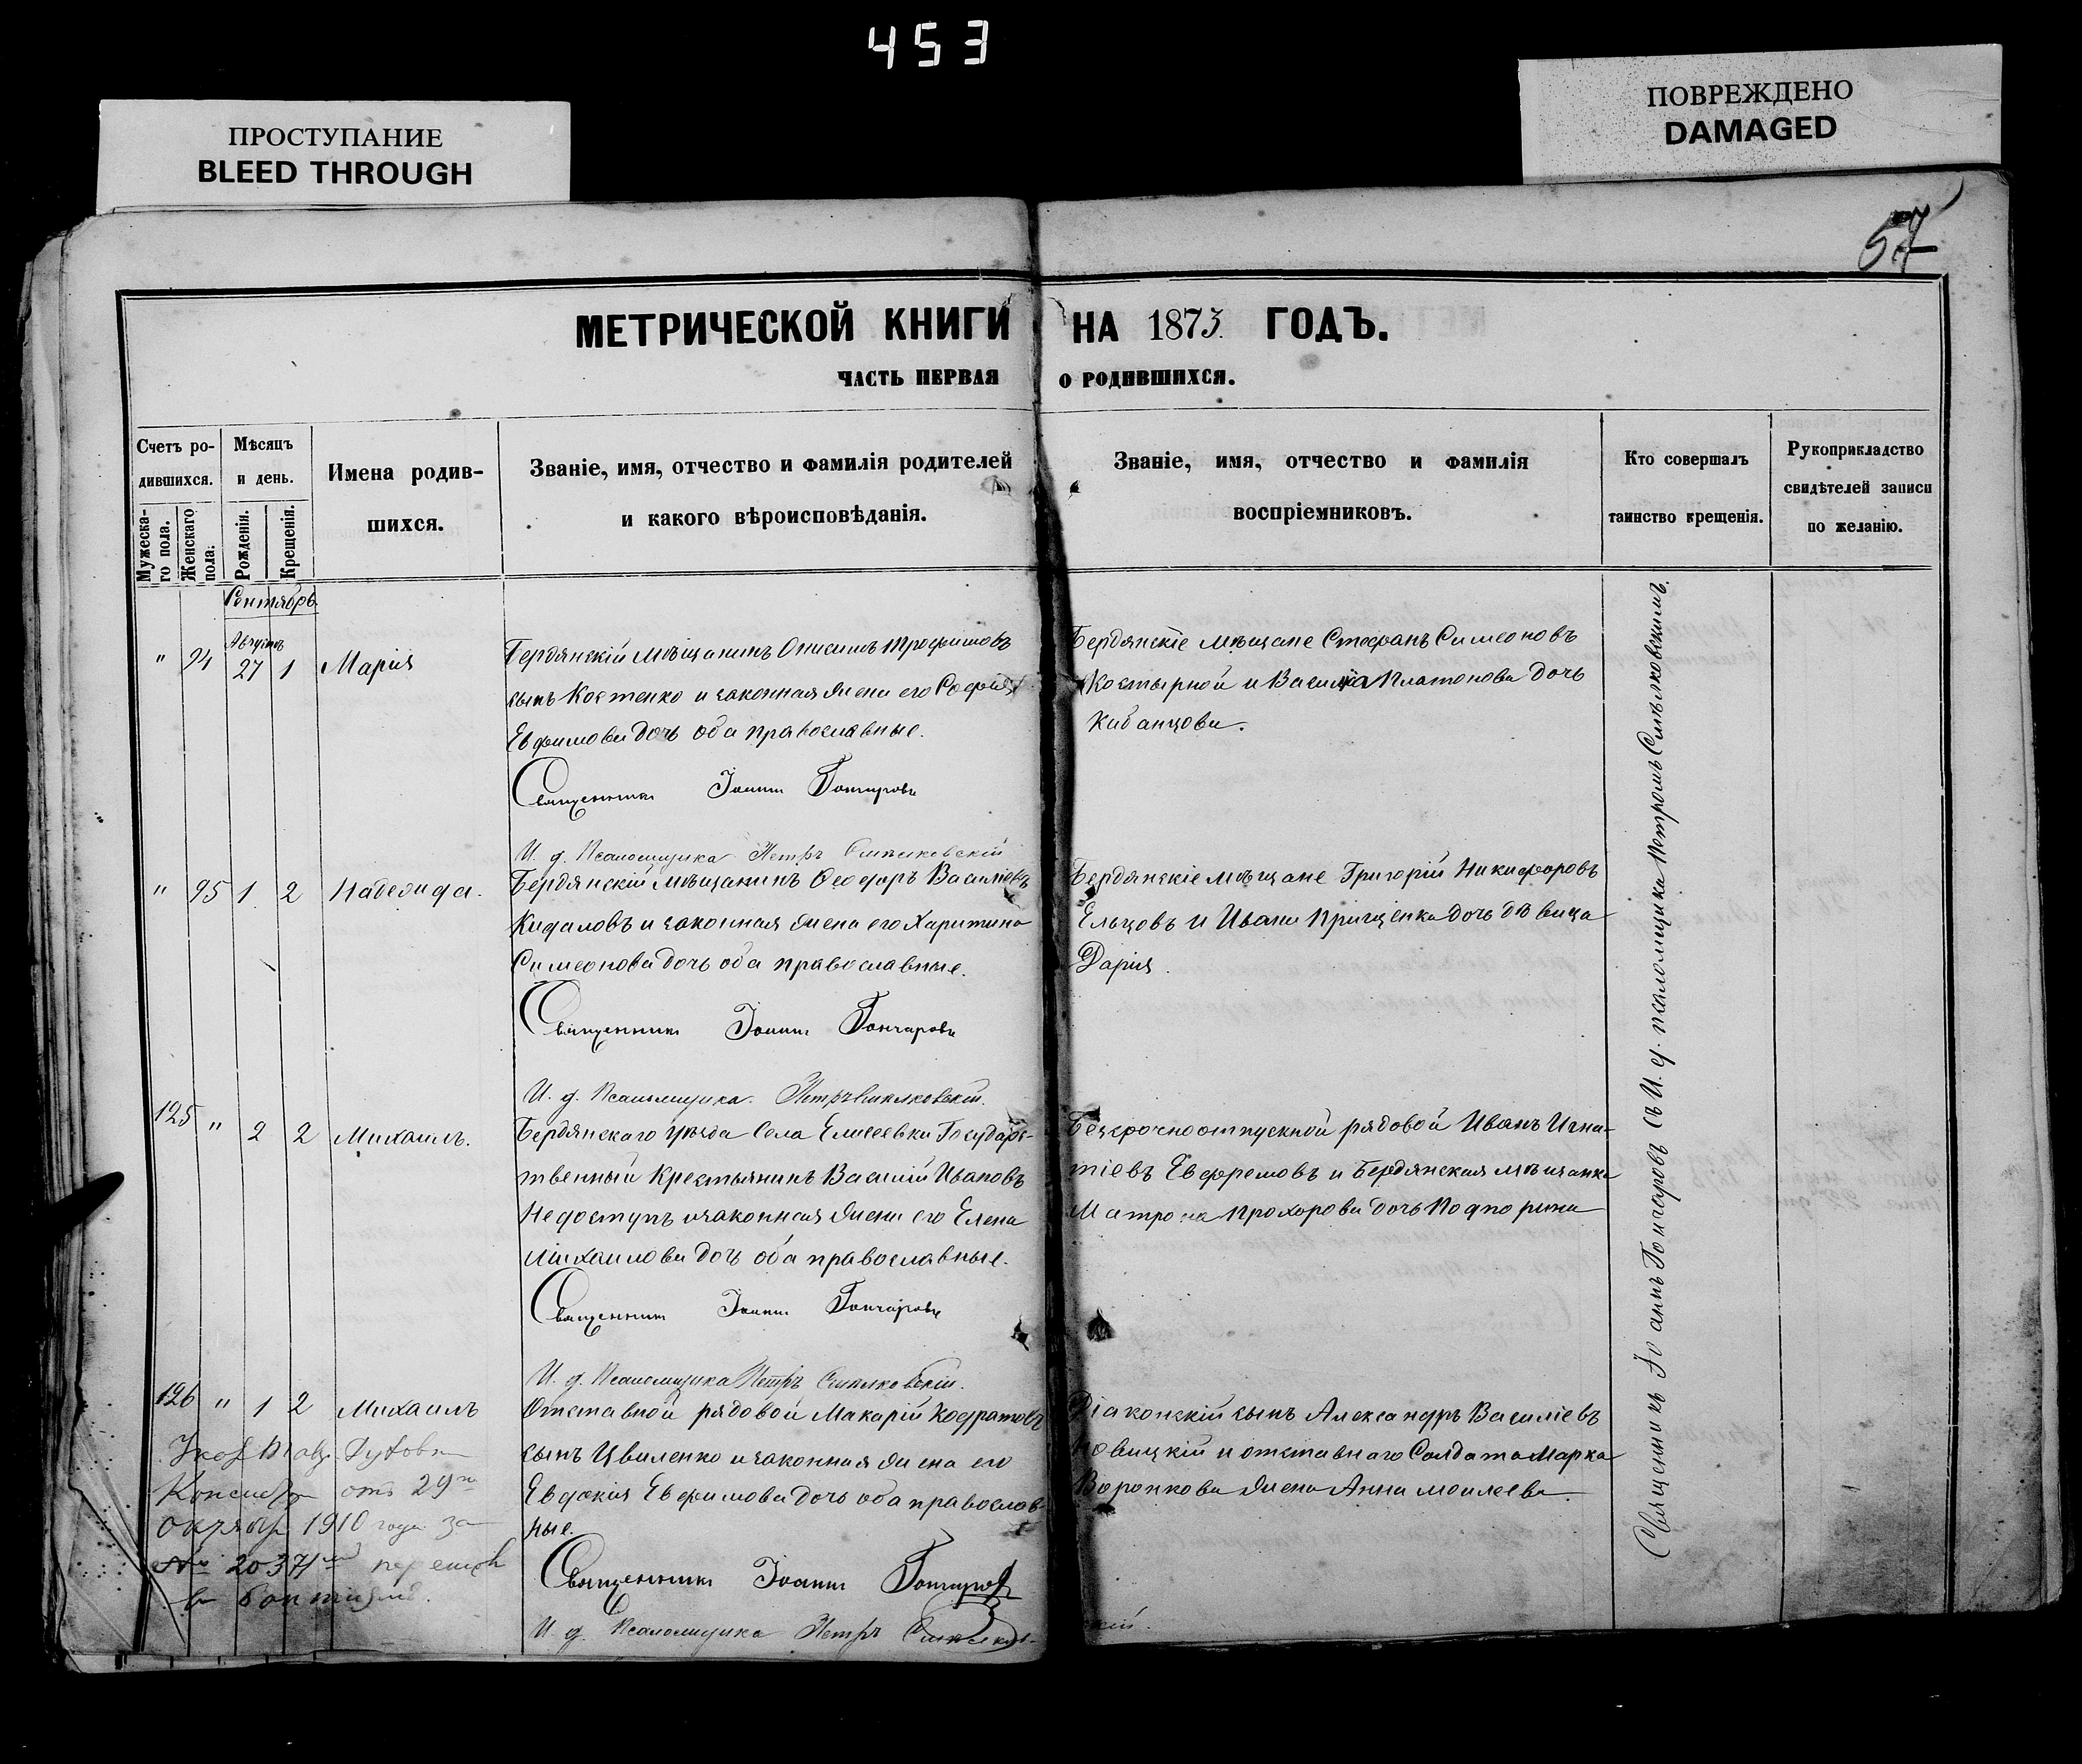 453
ПРОСТУПАНИЕ
BLEED THROUGH
ПОВРЕЖДЕНО
DAMAGED
57
МЕТРИЧЕСКОЙ КНИГИ НА 1873. ГОДЪ.
ЧАСТЬ ПЕРВАЯ О РОДИВШИХСЯ.
Счетъ ро-
дившихся.
Мужеска-
го пола.
Женскаго
пола.
Мѣсяцъ
и день.
Рожденія.
Крещенія.
Имена родив-
шихся.
Званіе, имя, отчество и фамилія родителей
и какого вѣроисповѣданія.
Званіе, имя, отчество и фамилія
воспріемниковъ.
Кто совершалъ
таинство крещенія.
Рукоприкладство
свидѣтелей записи
по желанію.
Сентябрь
Августъ
" 94 27 1 Марія
Бердянскій мѣщанинъ Онисимъ Трофимовъ
сынъ Костенко и законная жена его Софія
Евфимова дочь оба православные.
Священникъ Іоаннъ Гончаровъ
И. д. Псаломщика Петръ Смѣлковскій
Бердянскіе мѣщане Стефанъ Симеоновъ
Костырной и Василиса Платонова дочь
Кабанцова.
" 95 1 2 Надежда.
Бердянскій мѣщанинъ Ѳеодоръ Василіевъ
Кидаловъ и законная жена его Харитина
Симеонова дочь оба православные.
Священникъ Іоаннъ Гончаровъ
И. д. Псаломщика Петръ Смѣлковскій.
Бердянскіе мѣщане Григорій Никифоровъ
Ельцовъ и Ивана Прищенка дочь дѣвица
Дарія.
125 " 2 2 Михаилъ.
Бердянскаго уѣзда Села Елисеевки Государс-
твенный Крестьянинъ Василій Ивановъ
Недоступъ и законная жена его Елена
Михаилова дочь оба православные.
Священникъ Іоаннъ Гончаровъ
И. д. Псаломщика Петръ Смѣлковскій.
Безсрочноотпускной рядовой Иванъ Игна-
тіевъ Ефремовъ и Бердянская мѣщанка
Матрона Прохорова дочь Подпорина
126 " 1 2 Михаилъ
Отставной рядовой Макарій Кодратовъ
сынъ Цвиленко и законная жена его
Евдокія Евфимова дочь оба православ-
ные.
Священникъ Іоаннъ Гончаровъ
И. д. Псаломщика Петръ Смѣлковскій.
Діаконскій сынъ Александръ Василіевъ
Новицкій и отставнаго Солдата Марка
Воронкова жена Анна Моисеева.
Духовн
отъ 29го
октября 1910 года за
№ 20371 перешелъ
в баптизмъ.
Священникъ Іоаннъ Гончаровъ съ И. д. псаломщика Петромъ Смѣлковскимъ.